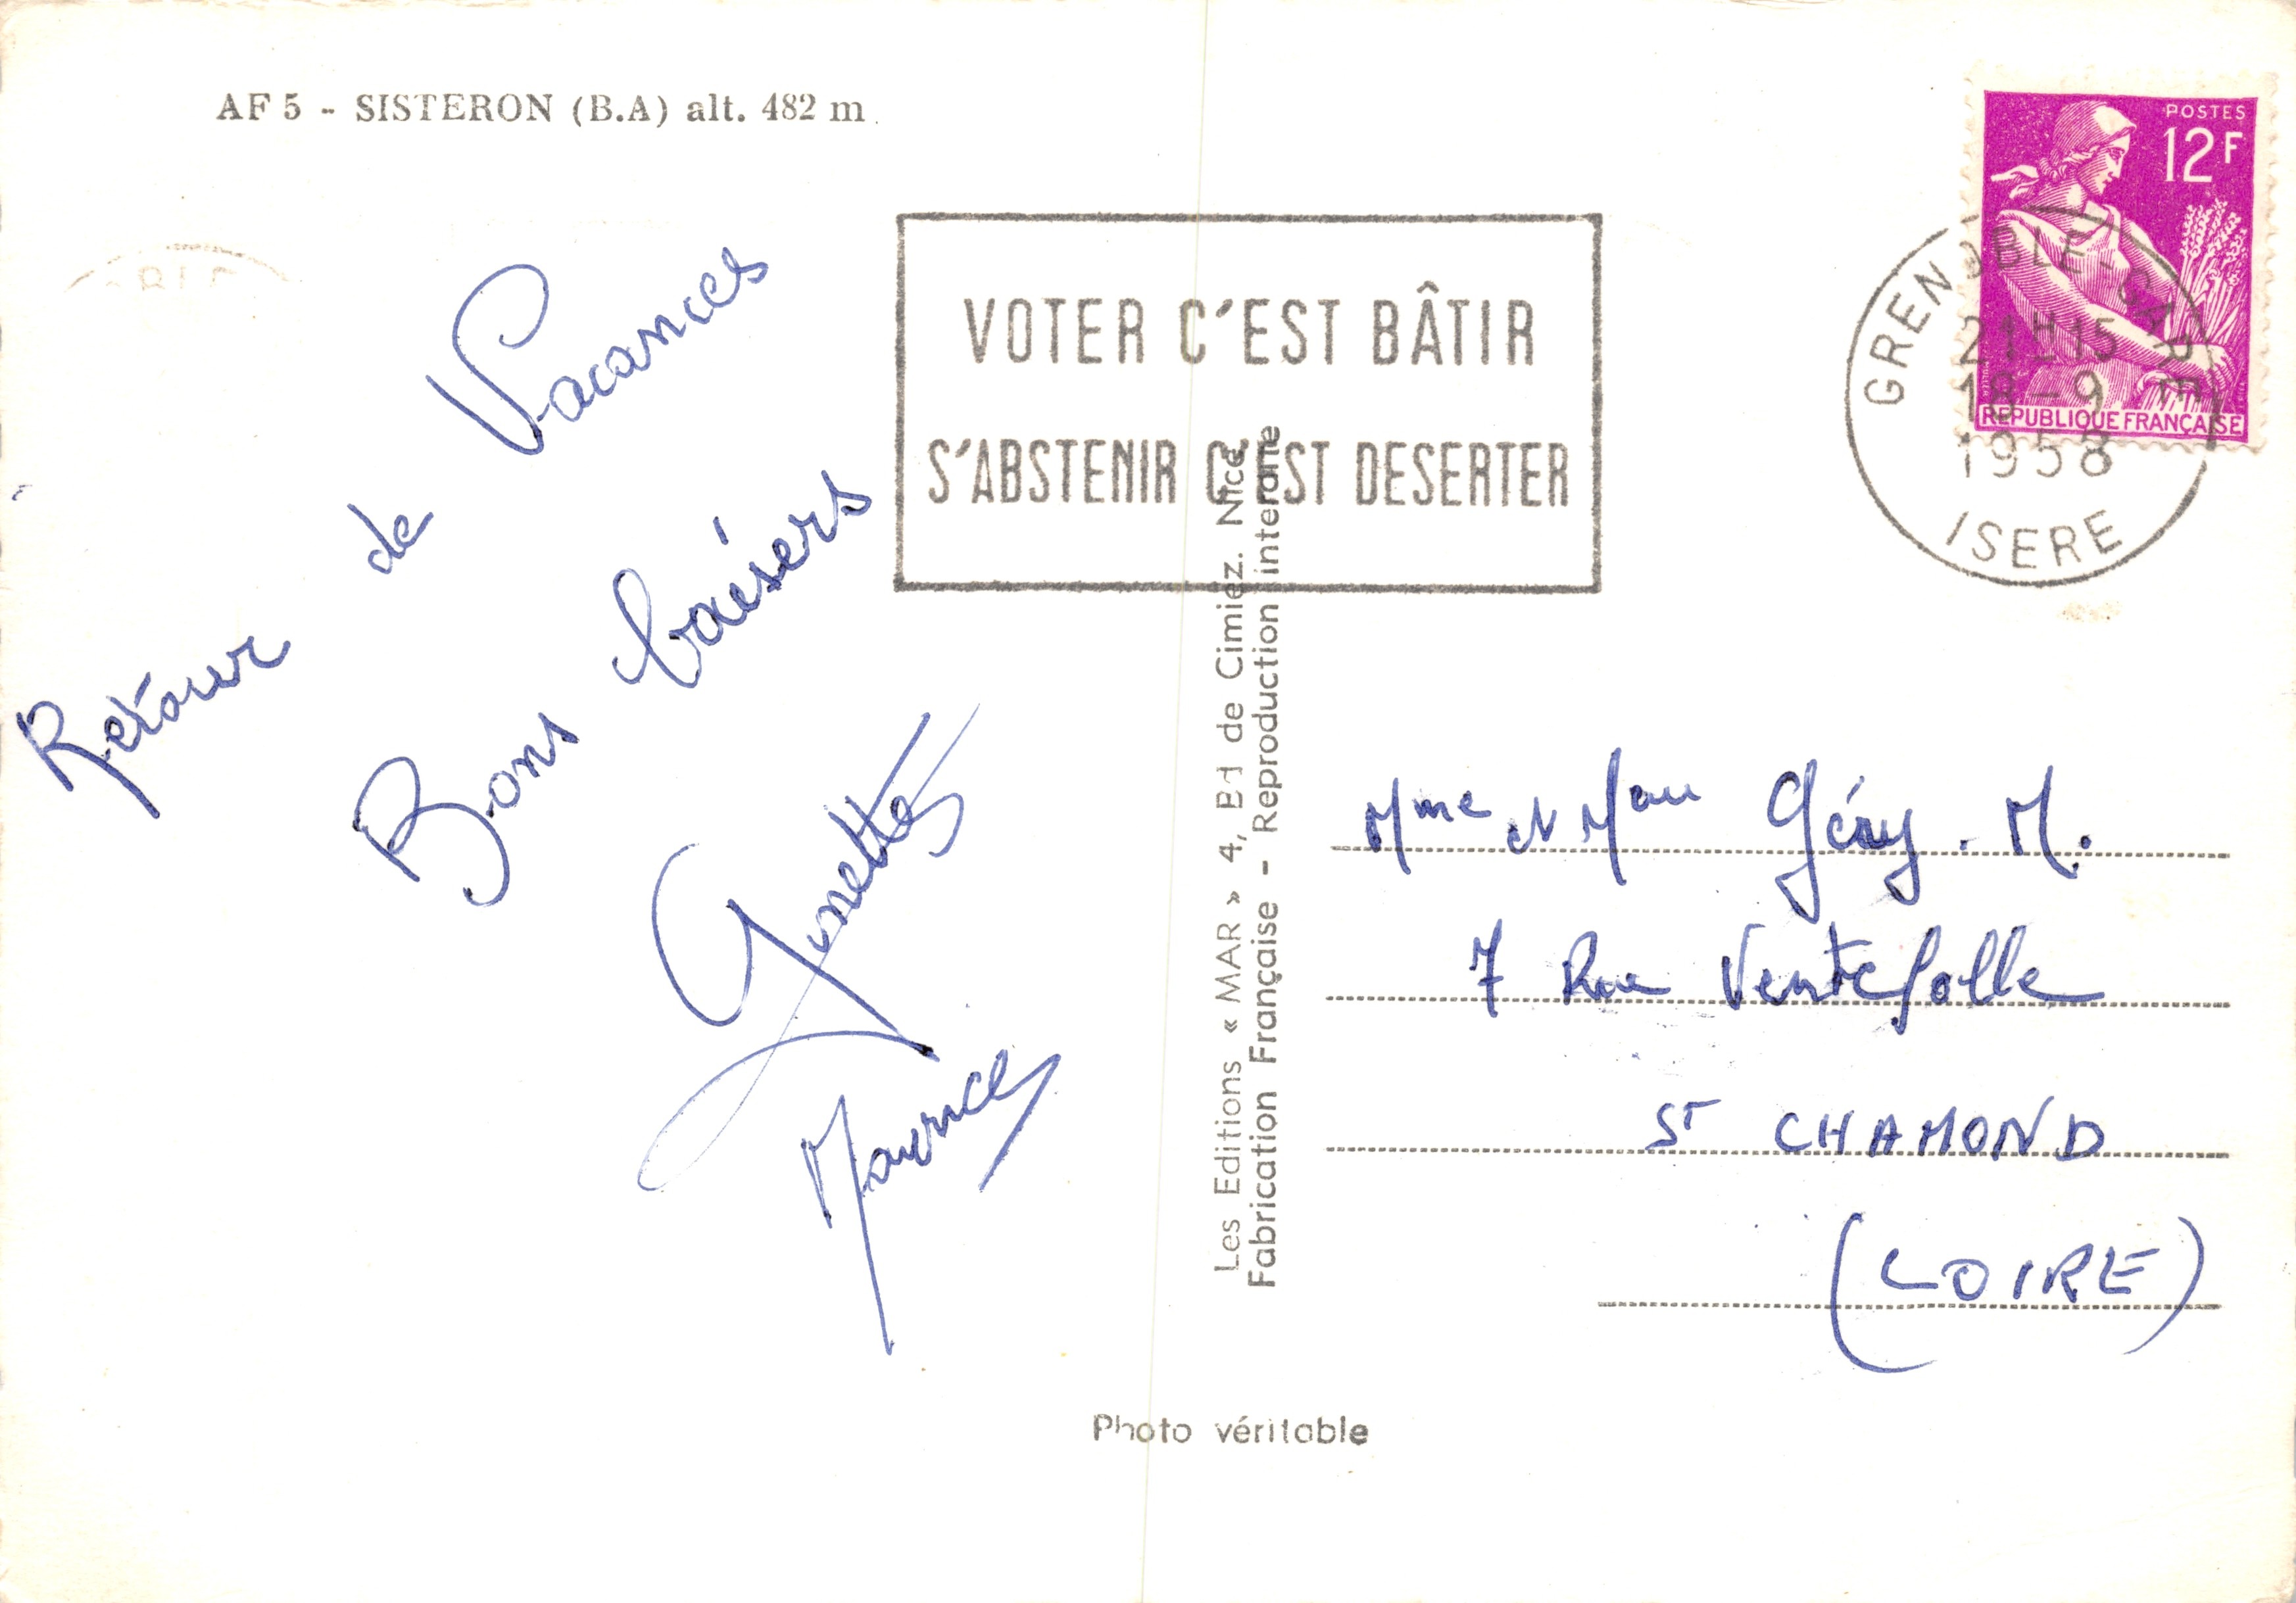 AF 5 - SISTERON (B.A) alt. 482 m.
POSTES
12F
REPUBLIQUE FRANÇAISE
VOTER C'EST BÂTIR
S'ABSTENIR C'EST DESERTER
GRENOBLE-GARE
21H15
18-9
1958
ISERE
Retour de Vacances
Bons baisers
Ginette
Maurice
Les Editions « MAR » 4, Bd de Cimiez. Nice
Fabrication Française - Reproduction interdite
Mme et Géry. M.
7 Rue Ventefolle
ST CHAMOND
(LOIRE)
Photo véritable